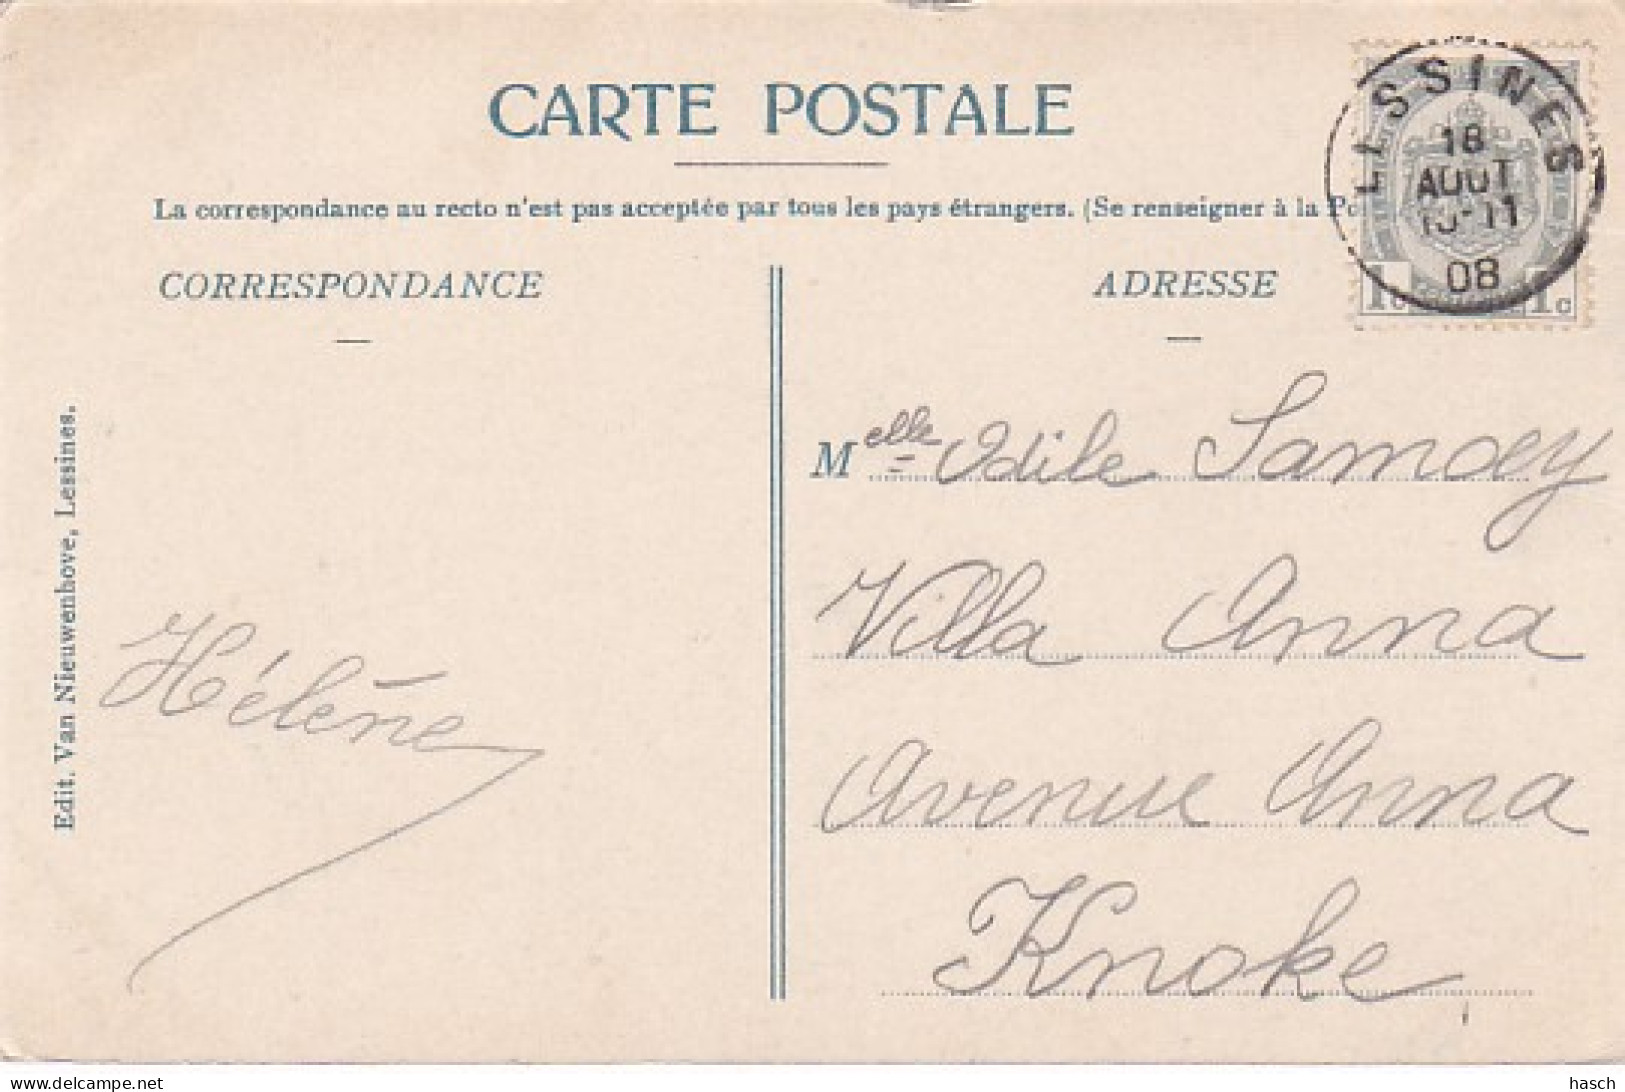 CARTE POSTALE
La correspondance au recto n'est pas acceptée par tous les pays étrangers. (Se renseigner à la
CORRESPONDANCE
ADRESSE
LESSINES
18
AOUT
10-11
08
1c 1c
Melle Odile Samoey
Villa Anna
Avenue Anna
Knoke
Hélène
Edit. Van Nieuwenhove, Lessines.
hasch